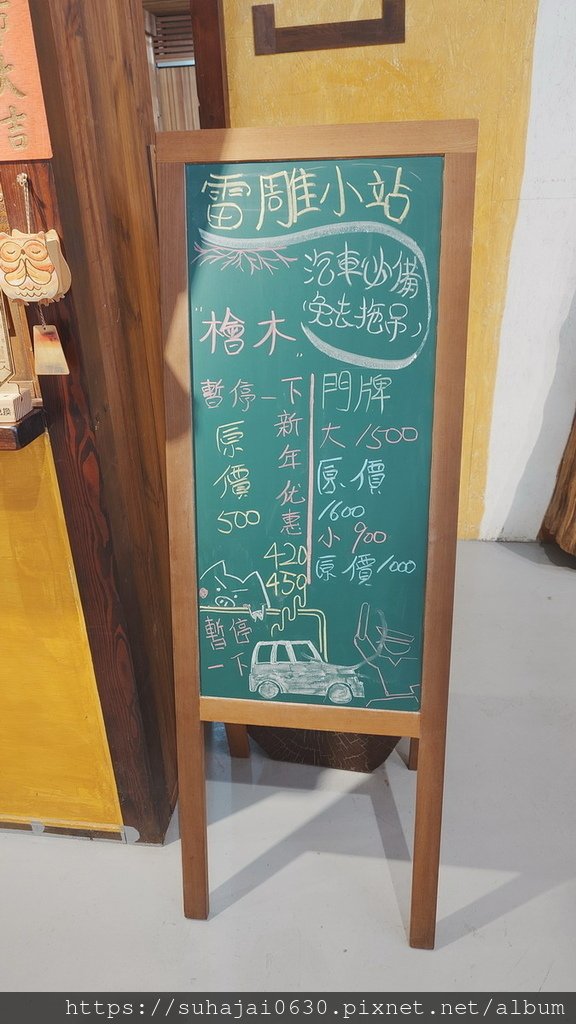 大
吉
雷雕小站
汽車必備
免去拖吊
"檜木"
暫停一下
原價
500
新年优惠
420
450
門牌
大 1500
原價
1600
小 900
原價1000
暫停
一下
https://suhajai0630.pixnet.net/album